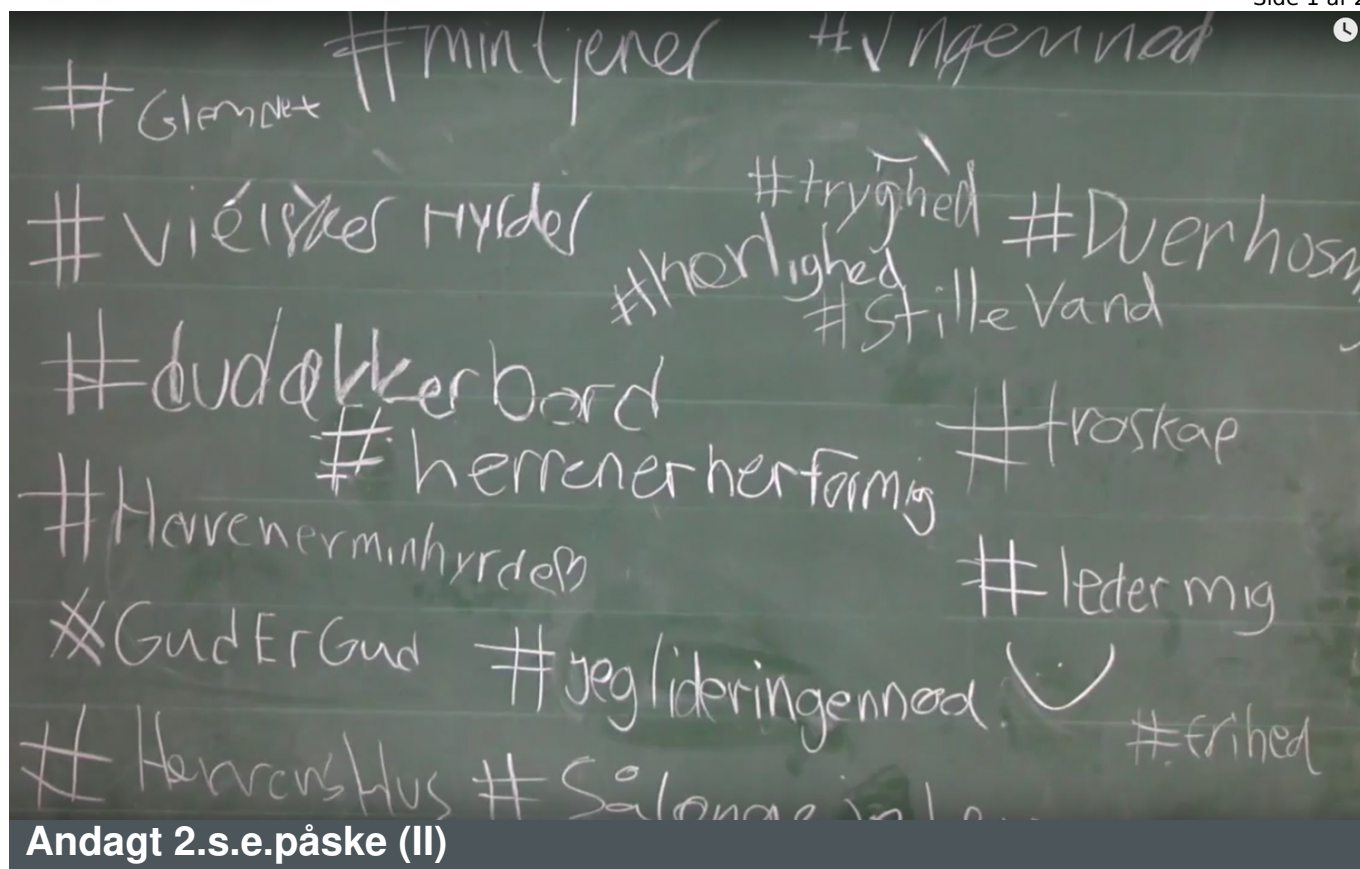 Side 1 af 2
#mintjener #Ingennød
#Glemnet
#tryghed
#viélsker Hyrder
#Duerhosm
#kærlighed
#StilleVand
#dudækkerbord
#troskap
#herrenerherformig
#Herrenerminhyrde
#ledermig
#GudErGud
#jeglideringennød
#frihed
#HerrensHus #Sålænge
Andagt 2.s.e.påske (II)